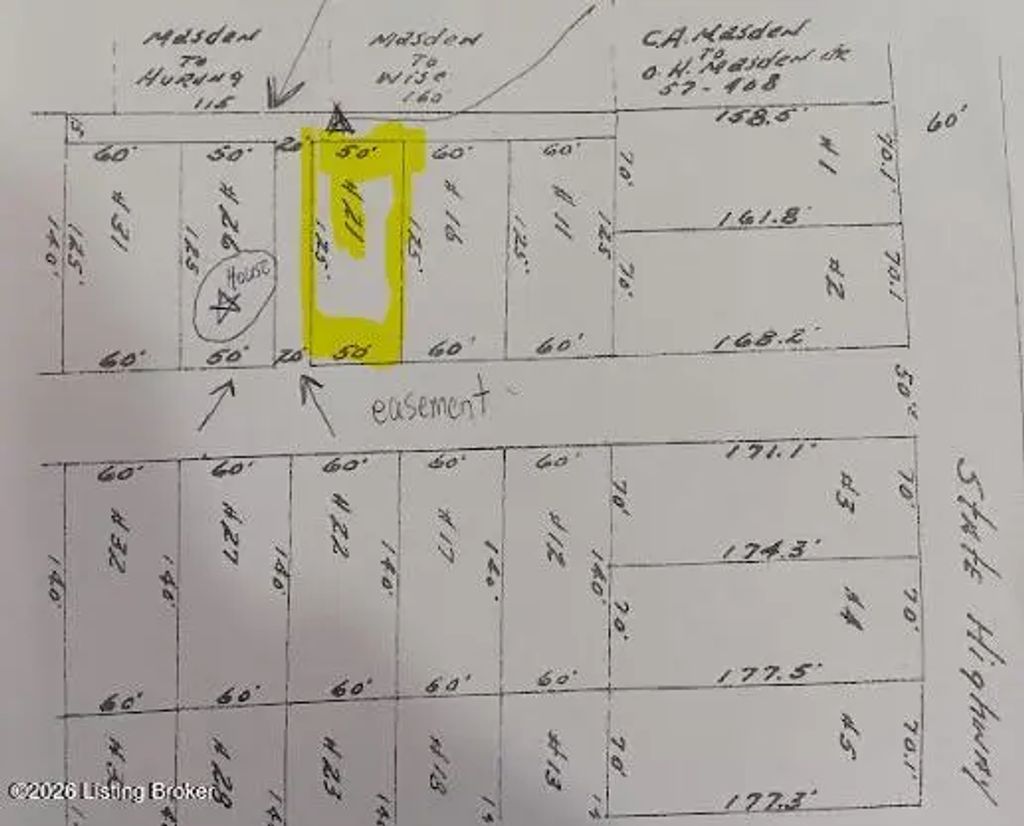 Masden
To
Hurung
115
Masden
To
Wise
160
C.A. Masden
To
O.H. Masden etc
57-408
158.5'
60'
15'
60' 50' 20' 50' 60' 60'
#31 #26 #21 #16 #11
140' 125' 125 125' 125' 125' 125
70' #1 70.1'
161.8'
House
70' #2 70.1
168.2'
60' 50' 20' 50' 60' 60'
50'
easement
171.1'
60' 60' 60' 60' 60'
#32 #27 #22 #17 #12
70' #3 70'
140' 140' 140' 140' 140' 140'
174.3'
70' #4 70'
State Highway
177.5'
60' 60' 60' 60' 60'
#28 #23 #18 #13
70' #5 70.1'
177.3'
©2026 Listing Broker